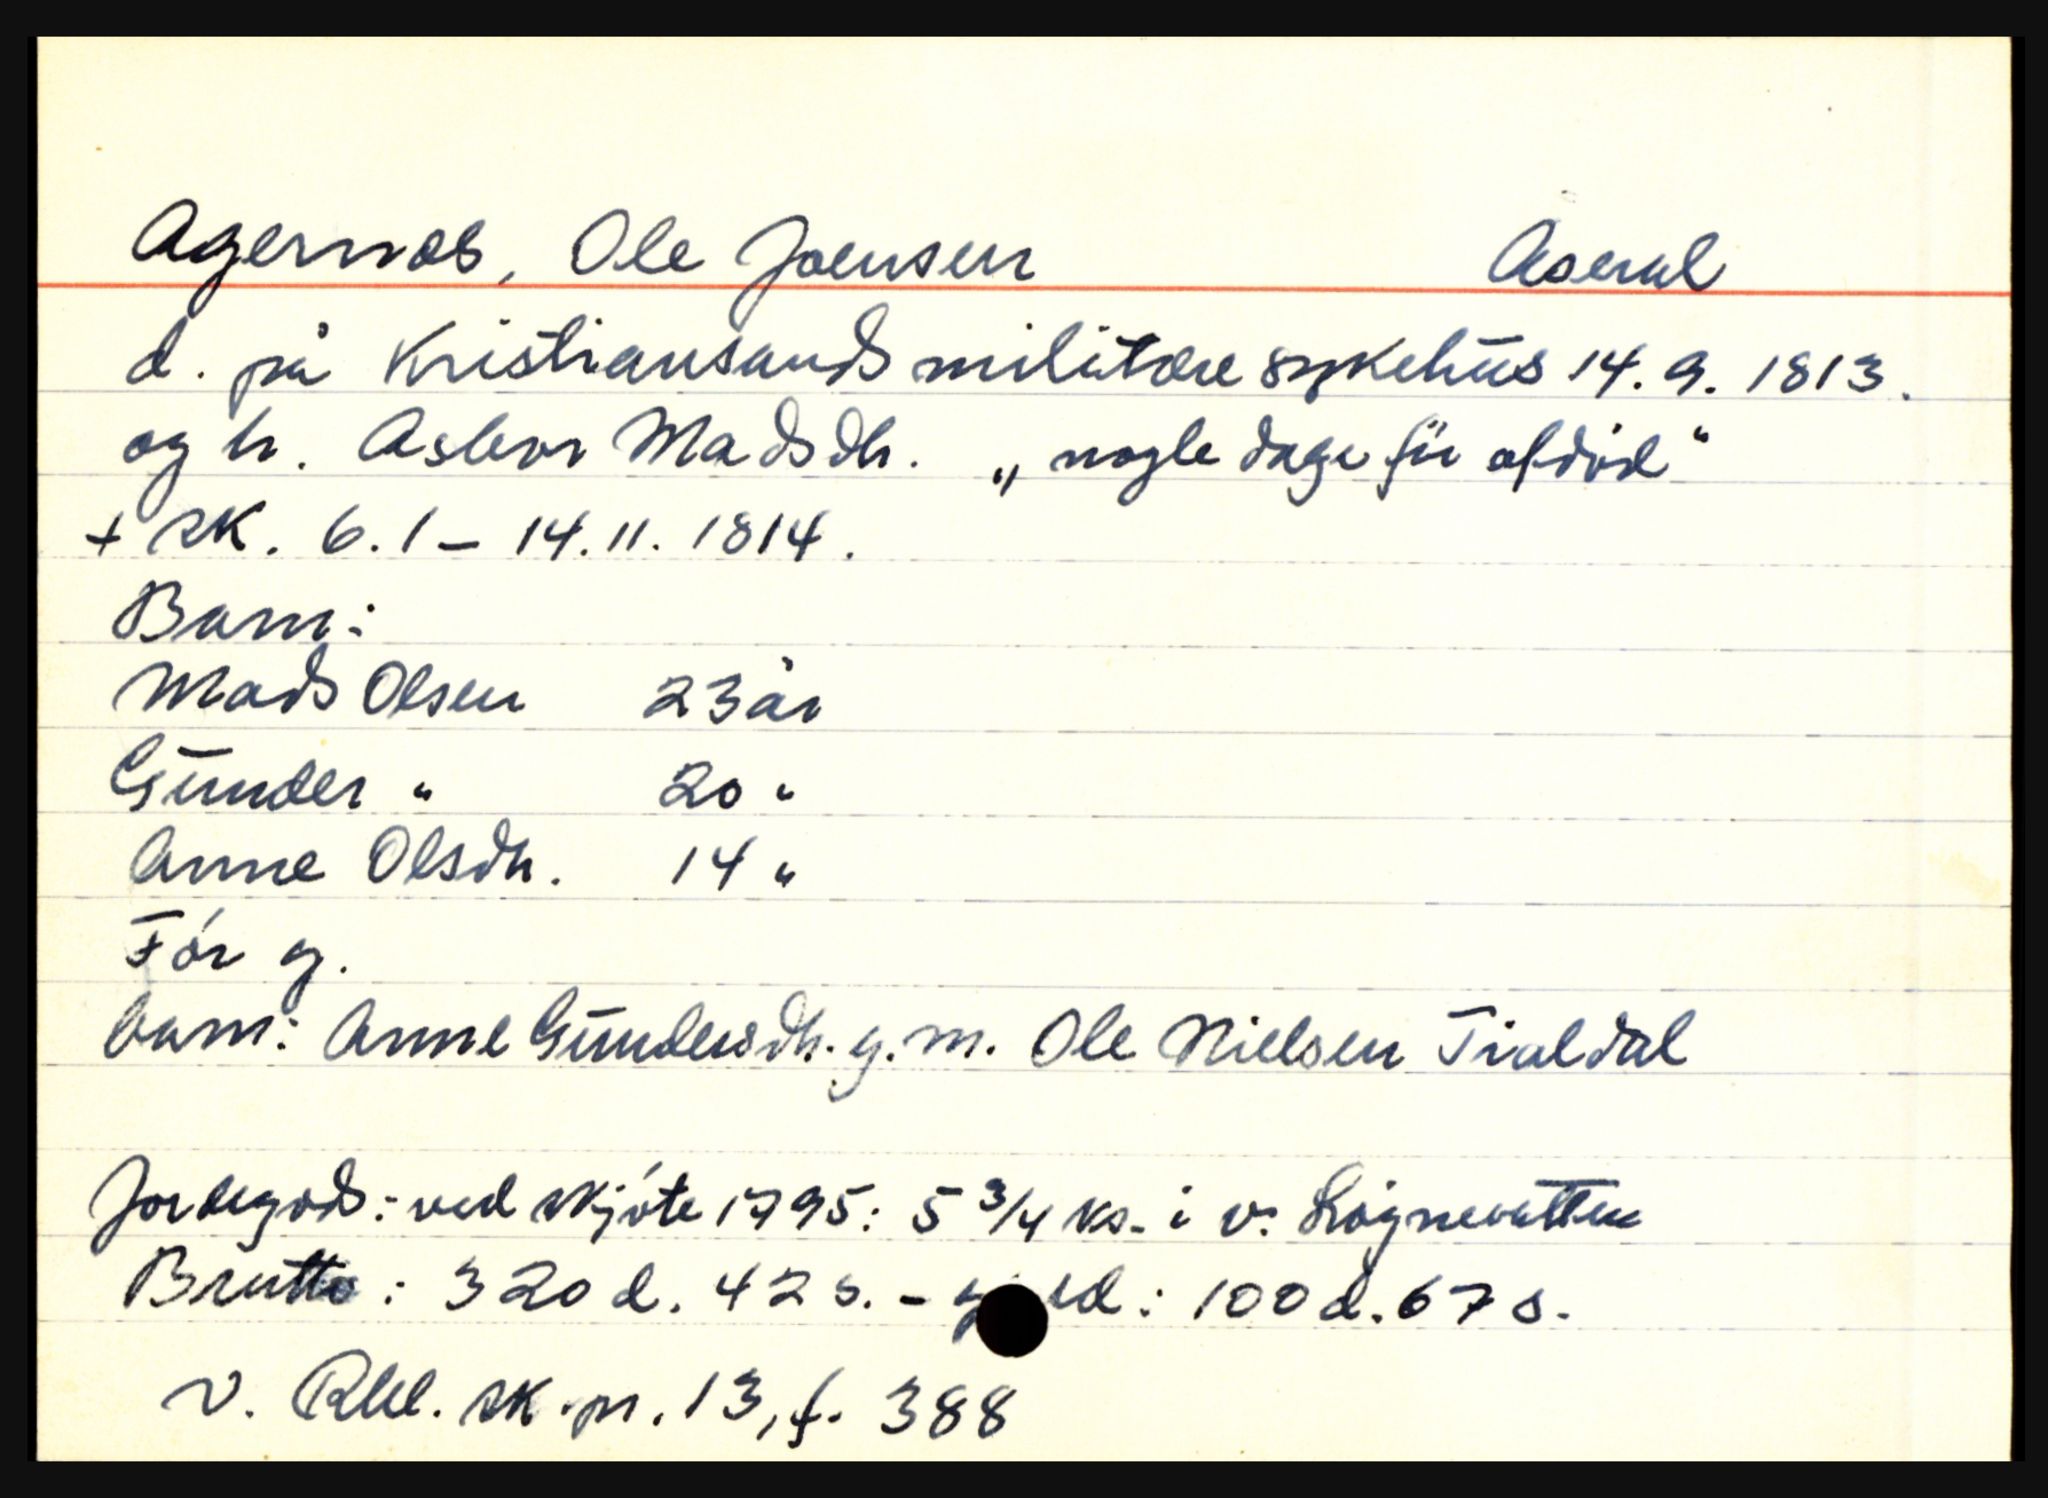 Agernæs, Ole Joensen Aseral
d. på Kristiansands militære sykehus 14.9. 1813.
og h. Aslaug Madsdtr. „nogle dage før afdöd“
+ sk. 6.1 – 14.11. 1814.
Barn:
Mads Olsen 23 år
Gunder " 20 "
Anne Olsdtr. 14 "
Før g.
barn: Anne Gundersdtr. g.m. Ole Nielsen Tialdal
Jordegods: ved skjøte 1795: 5 3/4 ks. i v. Lognevatten
Brutto: 320 d. 42 s. – : 100 d. 67 s.
V. Rbl. sk.pr. 13, f. 388